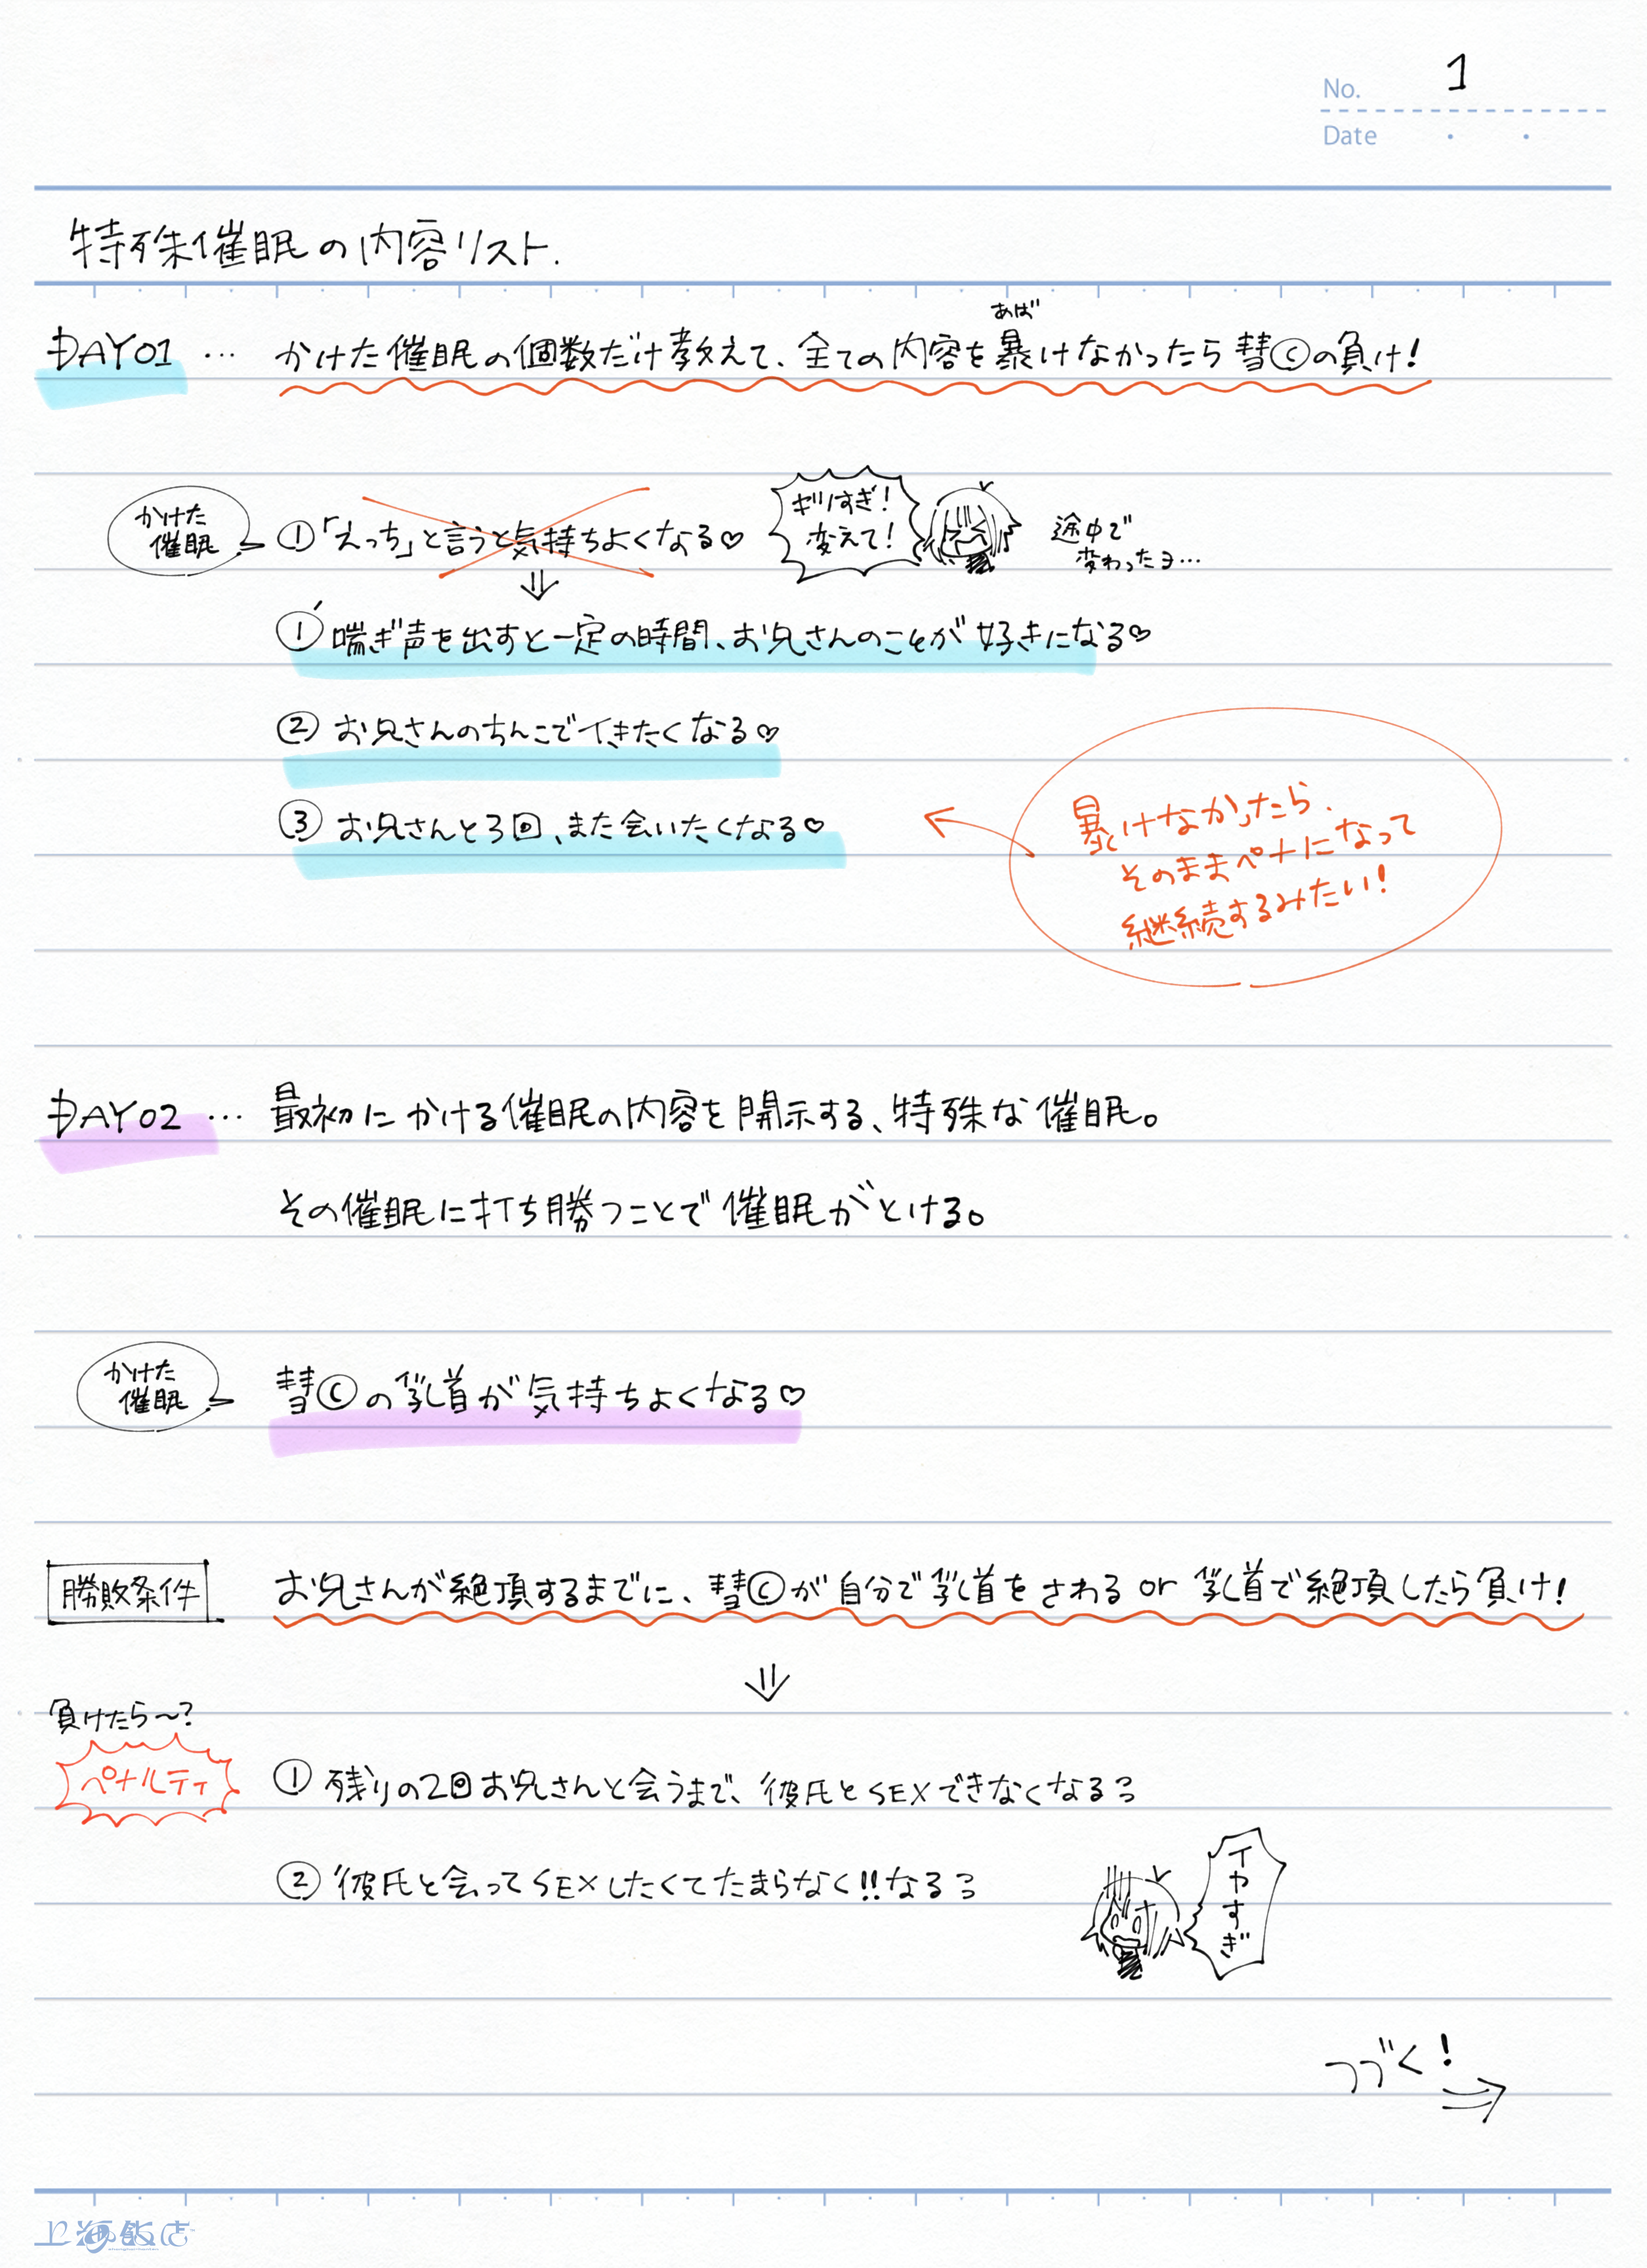 No. 1
Date
特殊催眠の内容リスト.
DAY01 … かけた催眠の個数だけ教えて、全ての内容を暴けなかったら彗©の負け!
あば
かけた
催眠
①「えっち」と言うと気持ちよくなる♡
ギリすぎ!
変えて!
途中で
変わったヨ…
⇓
①' 喘ぎ声を出すと一定の時間、お兄さんのことが好きになる♡
② お兄さんのちんこでイきたくなる♡
③ お兄さんと3回、また会いたくなる♡
暴けなかったら.
そのままペナになって
継続するみたい!
DAY02 … 最初にかける催眠の内容を開示する、特殊な催眠。
その催眠に打ち勝つことで催眠がとける。
かけた
催眠
彗©の乳首が気持ちよくなる♡
勝敗条件
お兄さんが絶頂するまでに、彗©が自分で乳首をさわる or 乳首で絶頂したら負け!
⇓
負けたら〜?
ペナルティ
① 残りの2回お兄さんと会うまで、彼氏とSEXできなくなるっ
② 彼氏と会ってSEXしたくてたまらなく!!なるっ
イヤすぎ
つづく!
⇒
上海飯店